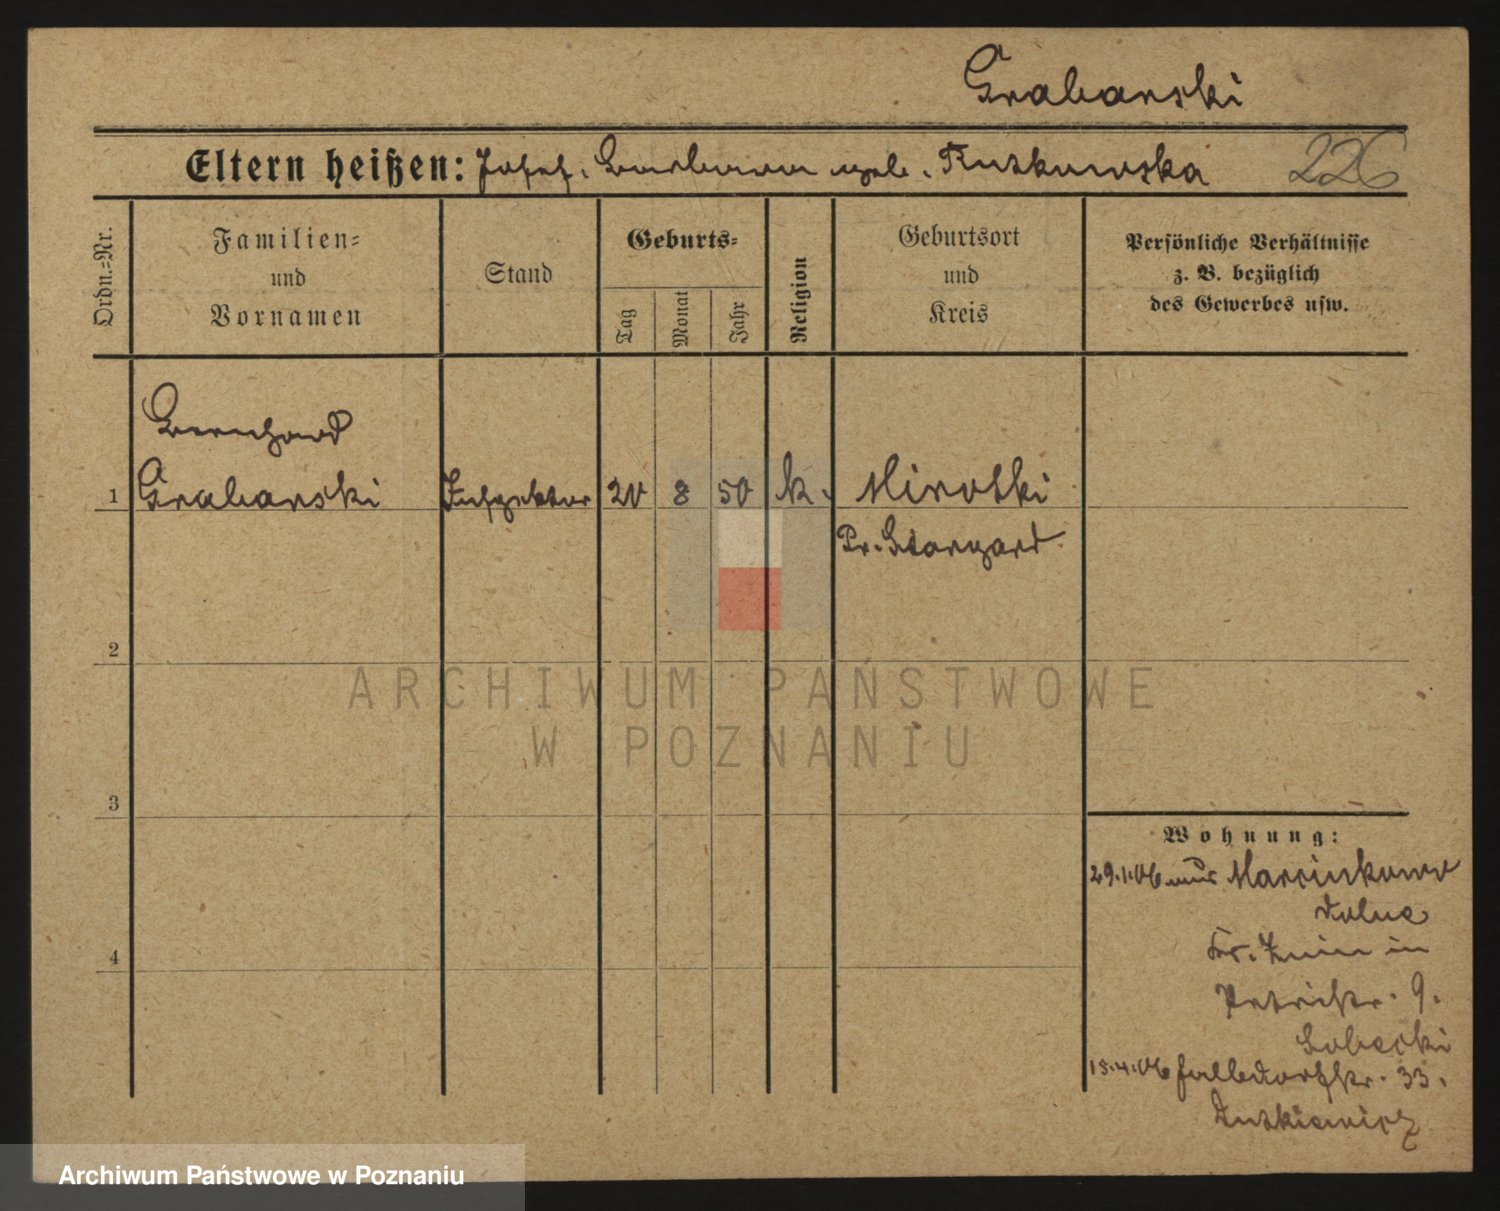 Grabanski
Eltern heißen: Josef. Barbara geb. Rutkowska 226
Ordn.=Nr.
Familien=
und
Vornamen
Stand
Geburts=
Tag
Monat
Jahr
Religion
Geburtsort
und
Kreis
Persönliche Verhältnisse
z. B. bezüglich
des Gewerbes usw.
Bernhard
1 Grabanski Inspektor 20 8 50 k. Mirotki
Pr. Stargard
2
3
4
Wohnung:
29.1.06 aus Marcinkowo
dolne
Kr. Znin in
Petristr. 9.
Sobecki
15.4.06 33.
Lutkiewicz
ARCHIWUM PAŃSTWOWE
W POZNANIU
Archiwum Państwowe w Poznaniu